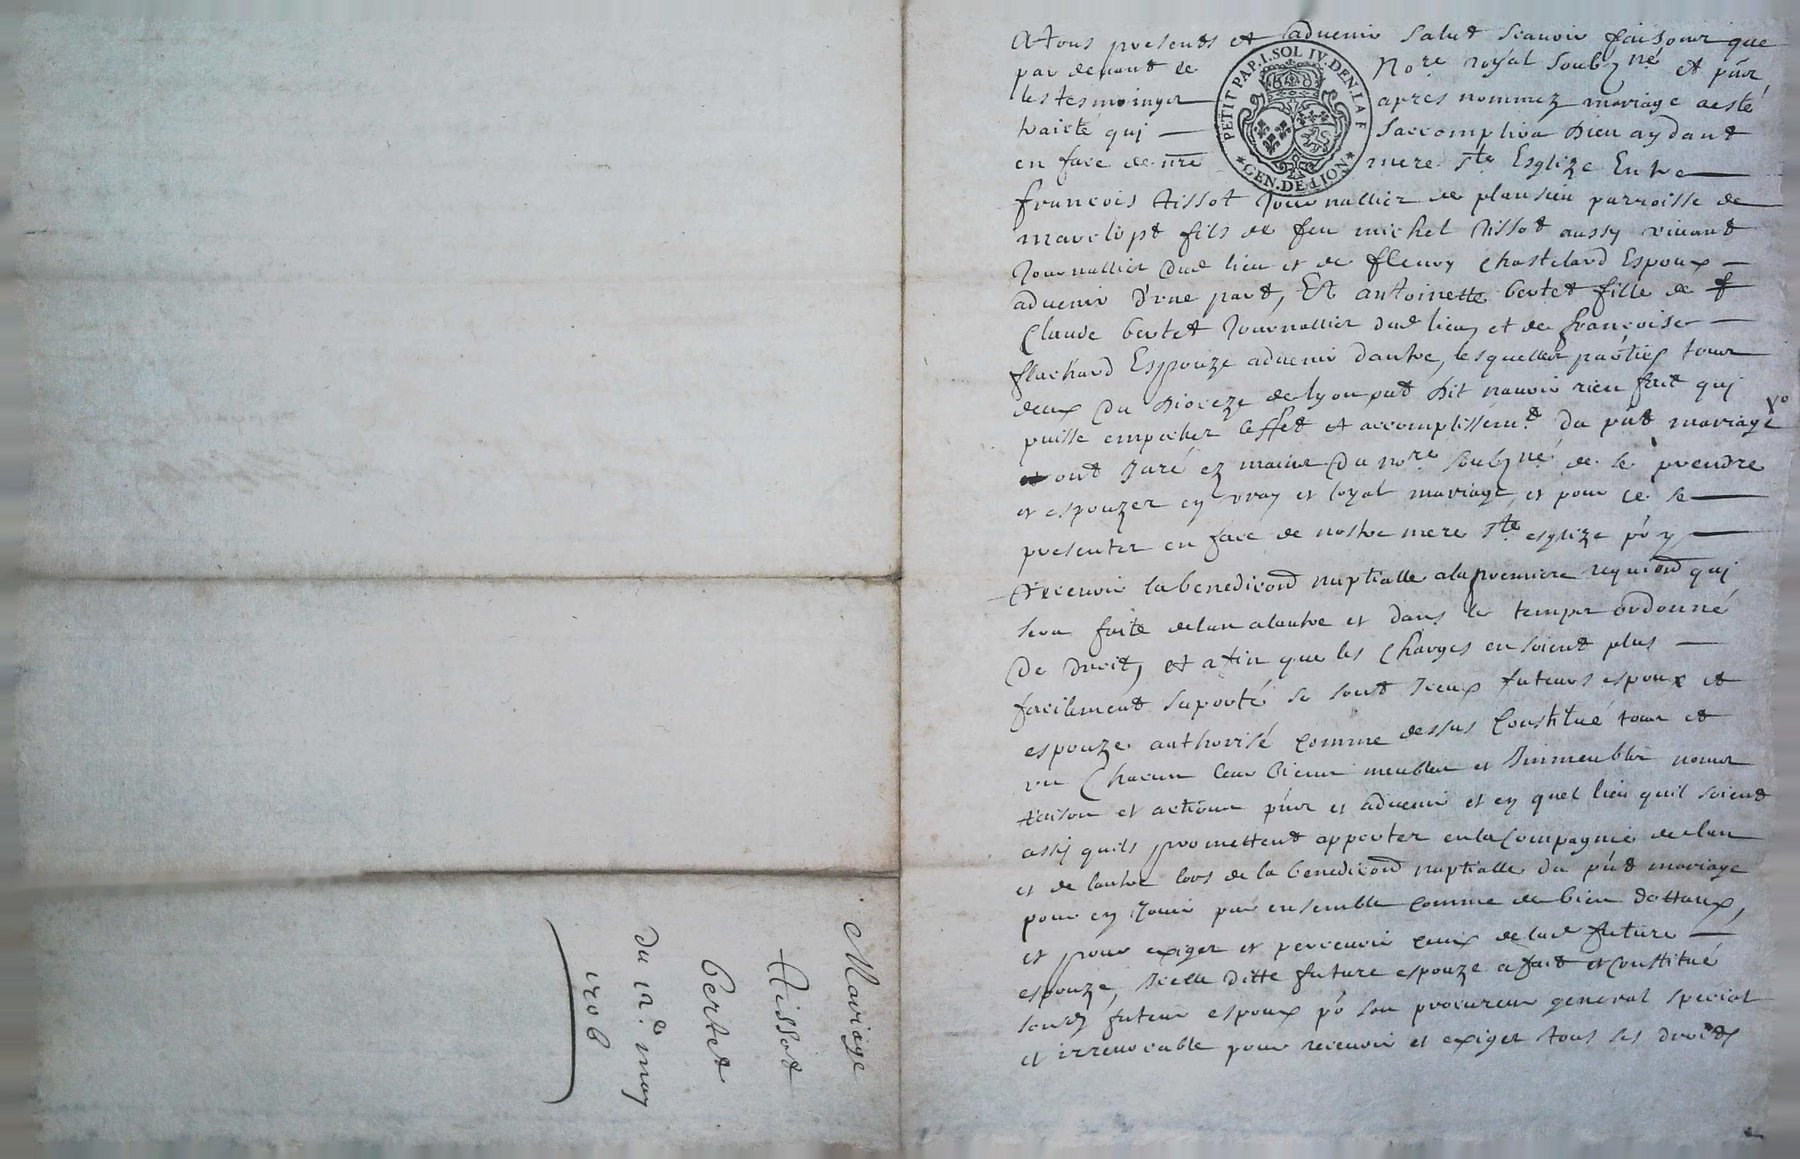 Mariage
Tissot
Bertet
du 12e may
1706
A tous presents et advenir salut scavoir faisons que
par devant le No.re royal soubz.né et pñs
les tesmoings apres nommez mariage a esté
traicté qui s'accomplira Dieu aydant
en face de nre mere Ste Esglize Entre
françois tissot Journallier de parroisse de
marclopt fils de feu michel tissot aussy vivant
Journallier dud lieu et de fleury Chastelard Espoux
advenir d'une part, Et antoinette bertet fille de
Claude bertet Journallier dud lieu et de françoise
flachard Espouze advenir d'autre, lesquelles parties tous
deux du Dioceze de lyon ont dit n'avoir rien fait qui
puisse empecher l'effet et accomplissem.t du pñt mariage
ont Juré ez mains du no.re soubz.né de se prendre
et espouzer en vray et loyal mariage, et pour ce se
presenter en face de nostre mere Ste esglize po.r y
recevoir la benediõn nuptialle a la premiere requiõn qui
sera faite de l'un a l'autre et dans le temps ordonné
De droit, et afin que les Charges en soient plus
facilement suporté se sont Iceux futeurs espoux et
espouze authorisé comme dessus Constitué tous et
un Chacun leurs biens meubles et Immeubles noms
raison et actions pñs et advenir et en quel lieu quil soient
assis quils promettent apporter en la Compagnie de l'un
et de l'autre lors de la benediõn nuptialle du pñt mariage
pour en Jouir par ensemble comme de bien dottaux,
et pour exiger et percevoir ceux de lad future
espouze, Icelle ditte future espouze a fait et constitué
sond futeur espoux po.r son procureur general special
et irrevocable pour recevoir et exiger tous ses droits
PETIT PAP. I. SOL IV. DEN. LA F
GEN. DE LION